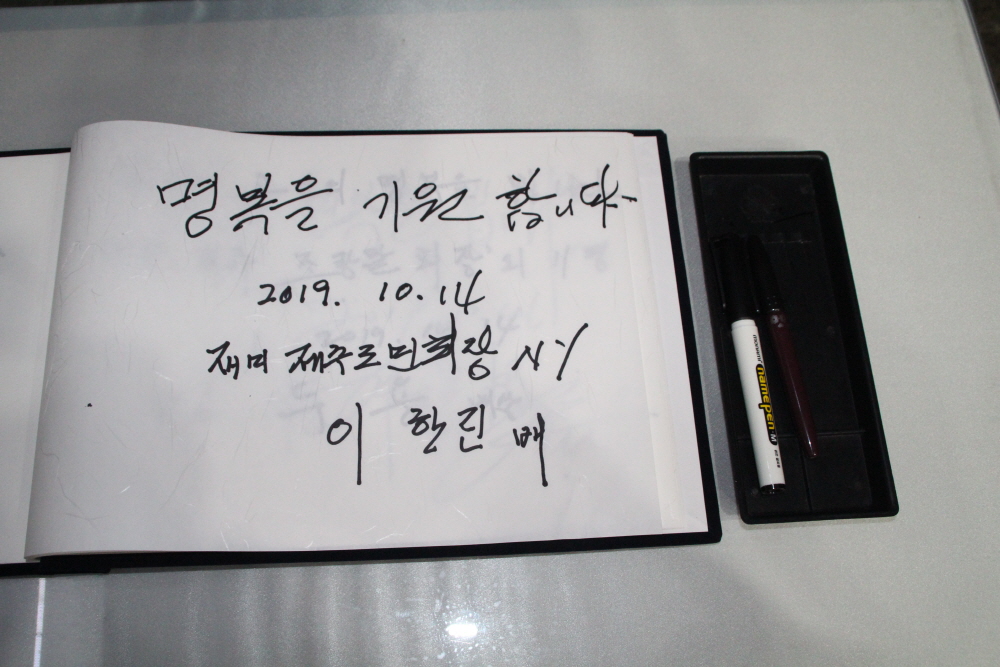 명복을 기원 합니다.
2019. 10. 14
재미 제주도민회장 NY
이 한진 배
monami namepen M